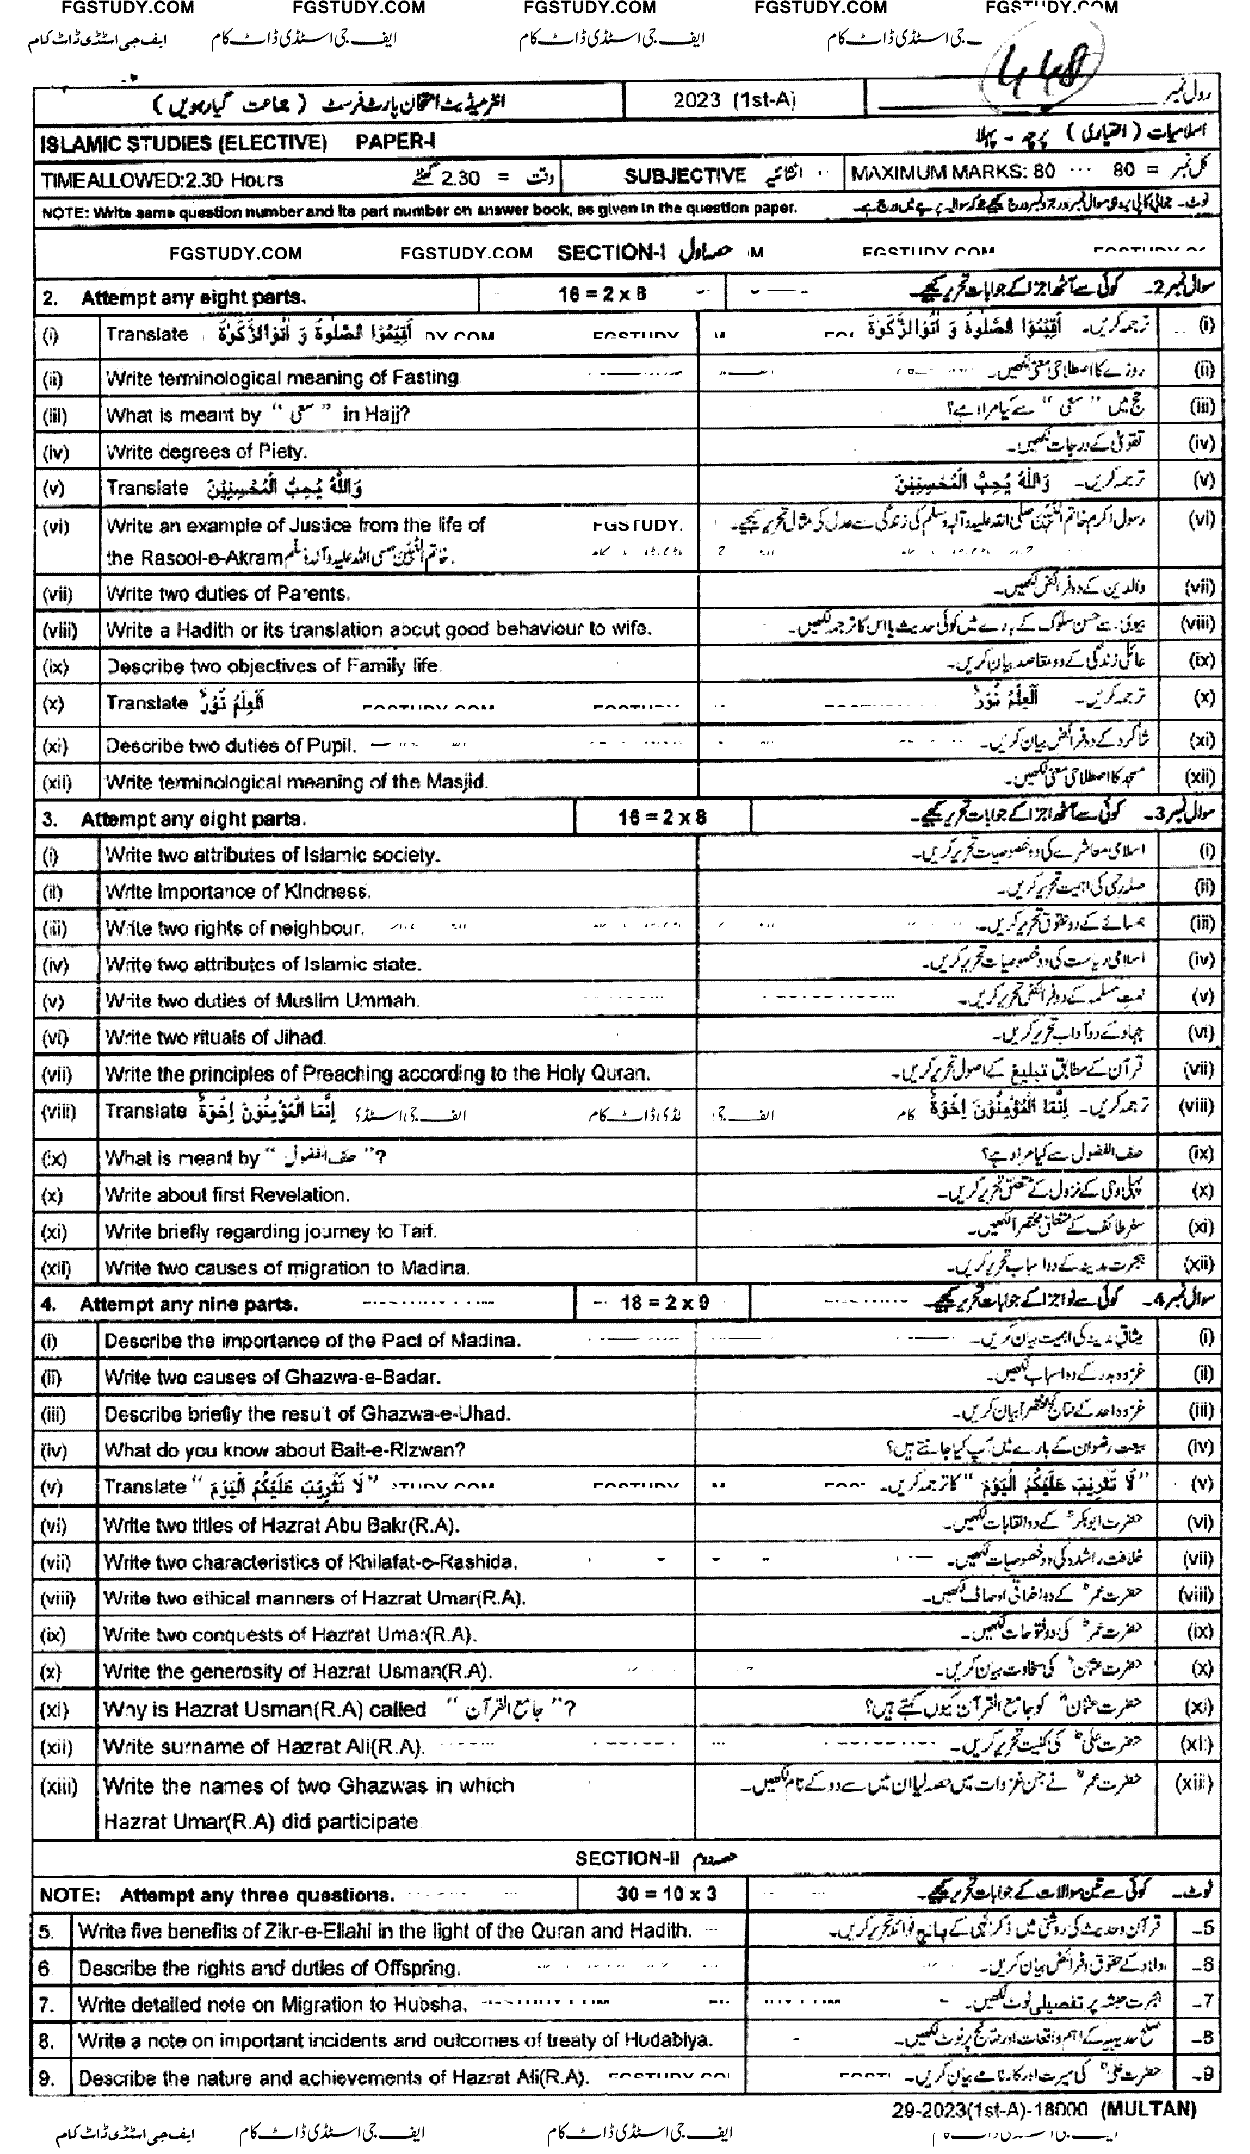 FGSTUDY.COM FGSTUDY.COM FGSTUDY.COM FGSTUDY.COM FGSTUDY.COM
ایف جی اسٹڈی ڈاٹ کام ایف جی اسٹڈی ڈاٹ کام ایف جی اسٹڈی ڈاٹ کام جی اسٹڈی ڈاٹ کام
448
رول نمبر 2023 (1st-A) انٹرمیڈیٹ امتحان پارٹ فرسٹ ( جماعت گیارہویں )
ISLAMIC STUDIES (ELECTIVE) PAPER-I اسلامیات ( اختیاری ) پرچہ - پہلا
TIME ALLOWED: 2.30 Hours وقت = 2.30 گھنٹے SUBJECTIVE انشائیہ MAXIMUM MARKS: 80 کل نمبر = 80
NOTE: Write same question number and its part number on answer book, as given in the question paper. نوٹ۔ جوابی کاپی پر وہی سوال نمبر اور جزو نمبر درج کیجیے جو کہ سوالیہ پرچے میں درج ہے۔
FGSTUDY.COM FGSTUDY.COM SECTION-I حصہ اول FGSTUDY.COM
2. Attempt any eight parts. 16 = 2 x 8 سوال نمبر 2۔ کوئی سے آٹھ اجزا کے جوابات تحریر کیجیے۔
(i) Translate أَقِيْمُوا الصَّلٰوةَ وَ اٰتُوا الزَّكٰوةَ ترجمہ کریں۔ أَقِيْمُوا الصَّلٰوةَ وَ اٰتُوا الزَّكٰوةَ (i)
(ii) Write terminological meaning of Fasting روزے کا اصطلاحی معنی لکھیں۔ (ii)
(iii) What is meant by " سعی " in Hajj? حج میں " سعی " سے کیا مراد ہے؟ (iii)
(iv) Write degrees of Piety. تقویٰ کے درجات لکھیں۔ (iv)
(v) Translate وَاللّٰهُ يُحِبُّ الْمُحْسِنِيْنَ ترجمہ کریں۔ وَاللّٰهُ يُحِبُّ الْمُحْسِنِيْنَ (v)
(vi) Write an example of Justice from the life of رسول اکرم خاتم النبیین صلی اللہ علیہ وآلہ وسلم کی زندگی سے عدل کی مثال تحریر کیجیے۔ (vi)
the Rasool-e-Akram خاتم النبیین صلی اللہ علیہ وآلہ وسلم.
(vii) Write two duties of Parents. والدین کے دو فرائض لکھیں۔ (vii)
(viii) Write a Hadith or its translation about good behaviour to wife. بیوی سے حسن سلوک کے بارے میں کوئی حدیث یا اس کا ترجمہ لکھیں۔ (viii)
(ix) Describe two objectives of Family life. عائلی زندگی کے دو مقاصد بیان کریں۔ (ix)
(x) Translate اَلْعِلْمُ نُوْرٌ ترجمہ کریں۔ اَلْعِلْمُ نُوْرٌ (x)
(xi) Describe two duties of Pupil. شاگرد کے دو فرائض بیان کریں۔ (xi)
(xii) Write terminological meaning of the Masjid. مسجد کا اصطلاحی معنی لکھیں۔ (xii)
3. Attempt any eight parts. 16 = 2 x 8 سوال نمبر 3۔ کوئی سے آٹھ اجزا کے جوابات تحریر کیجیے۔
(i) Write two attributes of Islamic society. اسلامی معاشرے کی دو خصوصیات تحریر کریں۔ (i)
(ii) Write Importance of Kindness. صلہ رحمی کی اہمیت تحریر کریں۔ (ii)
(iii) Write two rights of neighbour. ہمسائے کے دو حقوق تحریر کریں۔ (iii)
(iv) Write two attributes of Islamic state. اسلامی ریاست کی دو خصوصیات تحریر کریں۔ (iv)
(v) Write two duties of Muslim Ummah. امت مسلمہ کے دو فرائض تحریر کریں۔ (v)
(vi) Write two rituals of Jihad. جہاد کے دو آداب تحریر کریں۔ (vi)
(vii) Write the principles of Preaching according to the Holy Quran. قرآن کے مطابق تبلیغ کے اصول تحریر کریں۔ (vii)
(viii) Translate إِنَّمَا الْمُؤْمِنُوْنَ إِخْوَةٌ ترجمہ کریں۔ إِنَّمَا الْمُؤْمِنُوْنَ إِخْوَةٌ (viii)
(ix) What is meant by " حلف الفضول "? حلف الفضول سے کیا مراد ہے؟ (ix)
(x) Write about first Revelation. پہلی وحی کے نزول کے متعلق تحریر کریں۔ (x)
(xi) Write briefly regarding journey to Taif. سفر طائف کے متعلق مختصراً لکھیں۔ (xi)
(xii) Write two causes of migration to Madina. ہجرت مدینہ کے دو اسباب تحریر کریں۔ (xii)
4. Attempt any nine parts. 18 = 2 x 9 سوال نمبر 4۔ کوئی سے نو اجزا کے جوابات تحریر کیجیے۔
(i) Describe the importance of the Pact of Madina. میثاق مدینہ کی اہمیت بیان کریں۔ (i)
(ii) Write two causes of Ghazwa-e-Badar. غزوہ بدر کے دو اسباب لکھیں۔ (ii)
(iii) Describe briefly the result of Ghazwa-e-Uhad. غزوہ احد کے نتائج مختصراً بیان کریں۔ (iii)
(iv) What do you know about Bait-e-Rizwan? بیعت رضوان کے بارے میں آپ کیا جانتے ہیں؟ (iv)
(v) Translate " لَا تَثْرِيْبَ عَلَيْكُمُ الْيَوْمَ " " لَا تَثْرِيْبَ عَلَيْكُمُ الْيَوْمَ " کا ترجمہ کریں۔ (v)
(vi) Write two titles of Hazrat Abu Bakr(R.A). حضرت ابوبکرؓ کے دو القابات لکھیں۔ (vi)
(vii) Write two characteristics of Khilafat-e-Rashida. خلافت راشدہ کی دو خصوصیات لکھیں۔ (vii)
(viii) Write two ethical manners of Hazrat Umar(R.A). حضرت عمرؓ کے دو اخلاقی اوصاف لکھیں۔ (viii)
(ix) Write two conquests of Hazrat Umar(R.A). حضرت عمرؓ کی دو فتوحات لکھیں۔ (ix)
(x) Write the generosity of Hazrat Usman(R.A). حضرت عثمانؓ کی سخاوت بیان کریں۔ (x)
(xi) Why is Hazrat Usman(R.A) called " جامع القرآن "? حضرت عثمانؓ کو جامع القرآن کیوں کہتے ہیں؟ (xi)
(xii) Write surname of Hazrat Ali(R.A). حضرت علیؓ کی کنیت تحریر کریں۔ (xii)
(xiii) Write the names of two Ghazwas in which حضرت عمرؓ نے جن غزوات میں حصہ لیا ان میں سے دو کے نام لکھیں۔ (xiii)
Hazrat Umar(R.A) did participate
SECTION-II حصہ دوم
NOTE: Attempt any three questions. 30 = 10 x 3 نوٹ۔ کوئی سے تین سوالات کے جوابات تحریر کیجیے۔
5. Write five benefits of Zikr-e-Ellahi in the light of the Quran and Hadith. قرآن و حدیث کی روشنی میں ذکر الٰہی کے پانچ فوائد تحریر کریں۔ 5۔
6 Describe the rights and duties of Offspring. اولاد کے حقوق و فرائض بیان کریں۔ 6۔
7. Write detailed note on Migration to Hubsha. ہجرت حبشہ پر تفصیلی نوٹ لکھیں۔ 7۔
8. Write a note on important incidents and outcomes of treaty of Hudabiya. صلح حدیبیہ کے اہم واقعات اور نتائج پر نوٹ لکھیں۔ 8۔
9. Describe the nature and achievements of Hazrat Ali(R.A). حضرت علیؓ کی سیرت اور کارنامے بیان کریں۔ 9۔
29-2023(1st-A)-18000 (MULTAN)
ایف جی اسٹڈی ڈاٹ کام ایف جی اسٹڈی ڈاٹ کام ایف جی اسٹڈی ڈاٹ کام